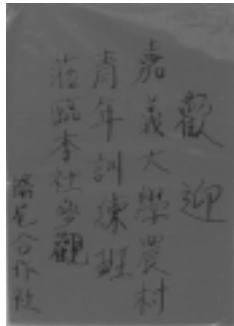 歡迎
嘉義大學農村
青年訓練班
蒞臨本社參觀
合作社